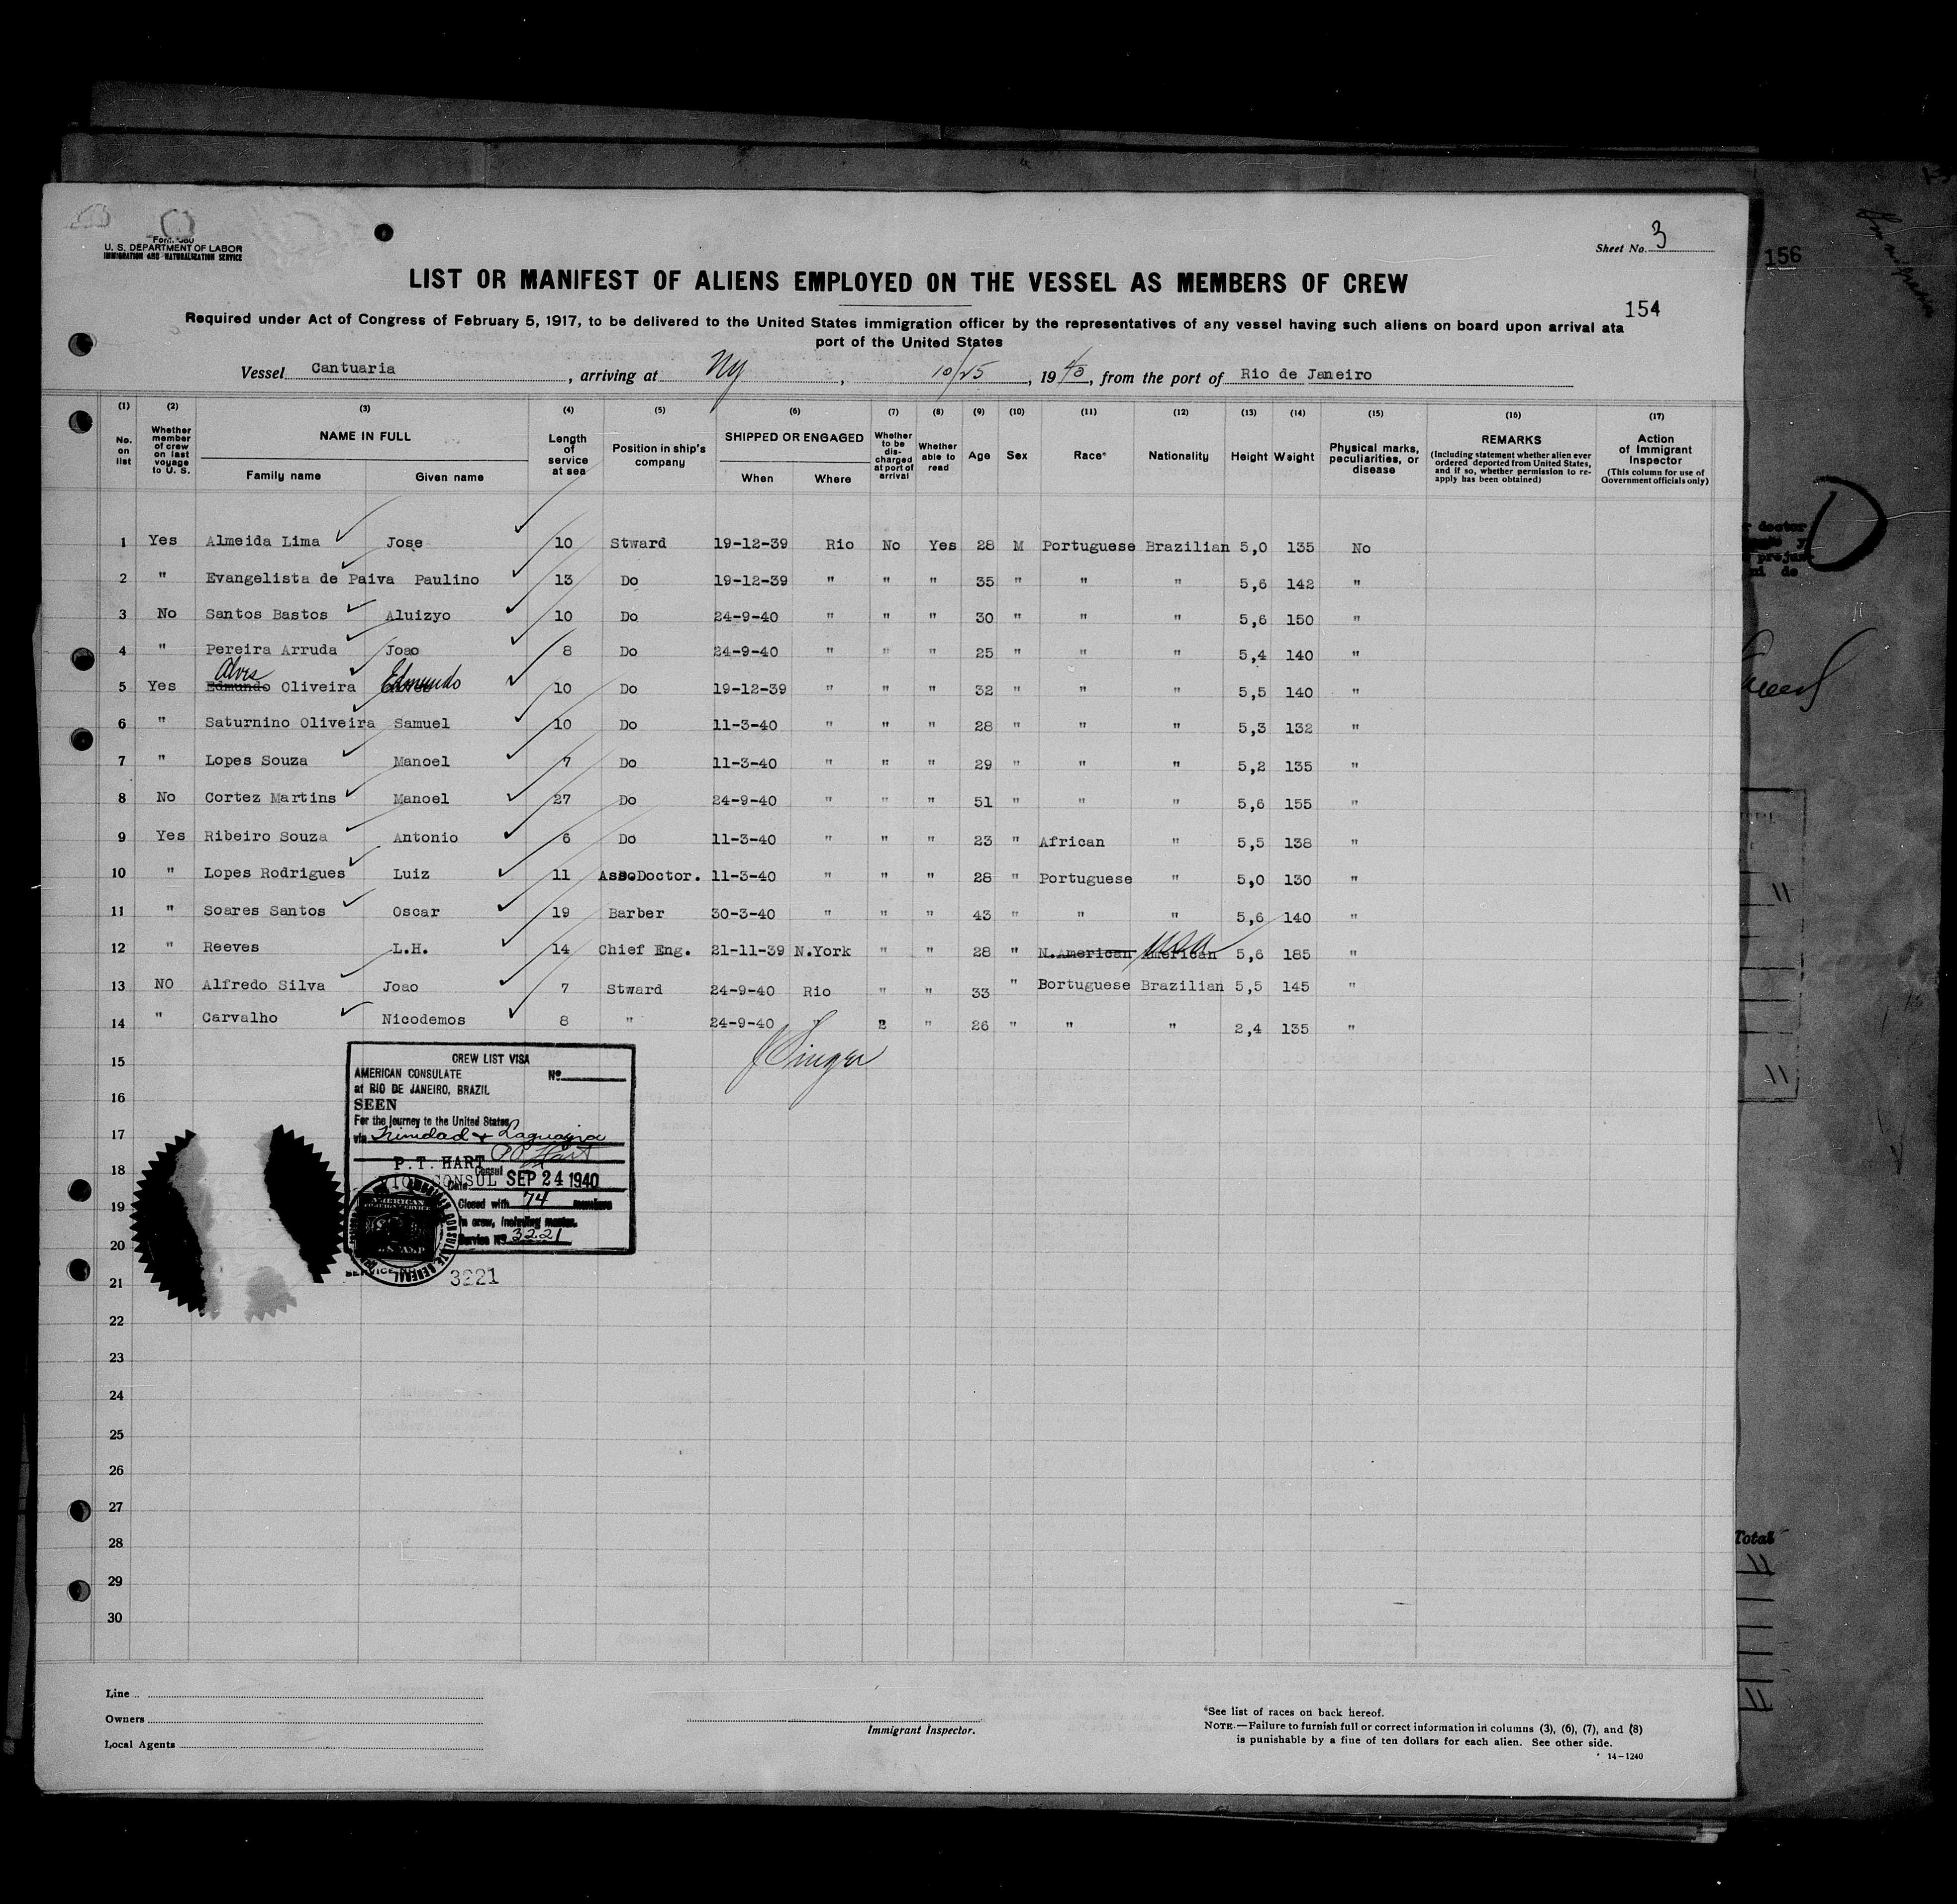 Form 680
U. S. DEPARTMENT OF LABOR
IMMIGRATION AND NATURALIZATION SERVICE
Sheet No. 3
156
LIST OR MANIFEST OF ALIENS EMPLOYED ON THE VESSEL AS MEMBERS OF CREW
154
Required under Act of Congress of February 5, 1917, to be delivered to the United States immigration officer by the representatives of any vessel having such aliens on board upon arrival at a
port of the United States
Vessel Cantuaria, arriving at Ny, 10/25, 1940, from the port of Rio de Janeiro
(1) (2) (3) (4) (5) (6) (7) (8) (9) (10) (11) (12) (13) (14) (15) (16) (17)
No. on list
Whether member of crew on last voyage to U. S.
NAME IN FULL
Family name Given name
Length of service at sea
Position in ship's company
SHIPPED OR ENGAGED
When Where
Whether to be discharged at port of arrival
Whether able to read
Age
Sex
Race*
Nationality
Height
Weight
Physical marks, peculiarities, or disease
REMARKS
(Including statement whether alien ever ordered deported from United States, and if so, whether permission to reapply has been obtained)
Action of Immigrant Inspector
(This column for use of Government officials only)
1 Yes Almeida Lima Jose 10 Stward 19-12-39 Rio No Yes 28 M Portuguese Brazilian 5,0 135 No
2 " Evangelista de Paiva Paulino 13 Do 19-12-39 " " " 35 " " " 5,6 142 "
3 No Santos Bastos Aluizyo 10 Do 24-9-40 " " " 30 " " " 5,6 150 "
4 " Pereira Arruda Joao 8 Do 24-9-40 " " " 25 " " " 5,4 140 "
Alves
5 Yes Edmundo Oliveira Edmundo 10 Do 19-12-39 " " " 32 " " " 5,5 140 "
6 " Saturnino Oliveira Samuel 10 Do 11-3-40 " " " 28 " " " 5,3 132 "
7 " Lopes Souza Manoel 7 Do 11-3-40 " " " 29 " " " 5,2 135 "
8 No Cortez Martins Manoel 27 Do 24-9-40 " " " 51 " " " 5,6 155 "
9 Yes Ribeiro Souza Antonio 6 Do 11-3-40 " " " 23 " African " 5,5 138 "
10 " Lopes Rodrigues Luiz 11 Ass.Doctor. 11-3-40 " " " 28 " Portuguese " 5,0 130 "
11 " Soares Santos Oscar 19 Barber 30-3-40 " " " 43 " " " 5,6 140 "
USA
12 " Reeves L.H. 14 Chief Eng. 21-11-39 N.York " " 28 " N.American American 5,6 185 "
13 NO Alfredo Silva Joao 7 Stward 24-9-40 Rio " " 33 " Bortuguese Brazilian 5,5 145 "
14 " Carvalho Nicodemos 8 " 24-9-40 " 2 " 26 " " " 2,4 135 "
15
16
17
18
19
20
21
22
23
24
25
26
27
28
29
30
CREW LIST VISA
AMERICAN CONSULATE No
at RIO DE JANEIRO, BRAZIL
SEEN
For the journey to the United States
via Trinidad + Laguayra
P.T. HART
Consul
VICE CONSUL Date SEP 24 1940
Closed with 74 members
in crew, including master.
Service No. 3221
3221
Line
Owners
Local Agents
Immigrant Inspector.
*See list of races on back hereof.
NOTE.—Failure to furnish full or correct information in columns (3), (6), (7), and (8)
is punishable by a fine of ten dollars for each alien. See other side.
14-1240
doctor
D
Total